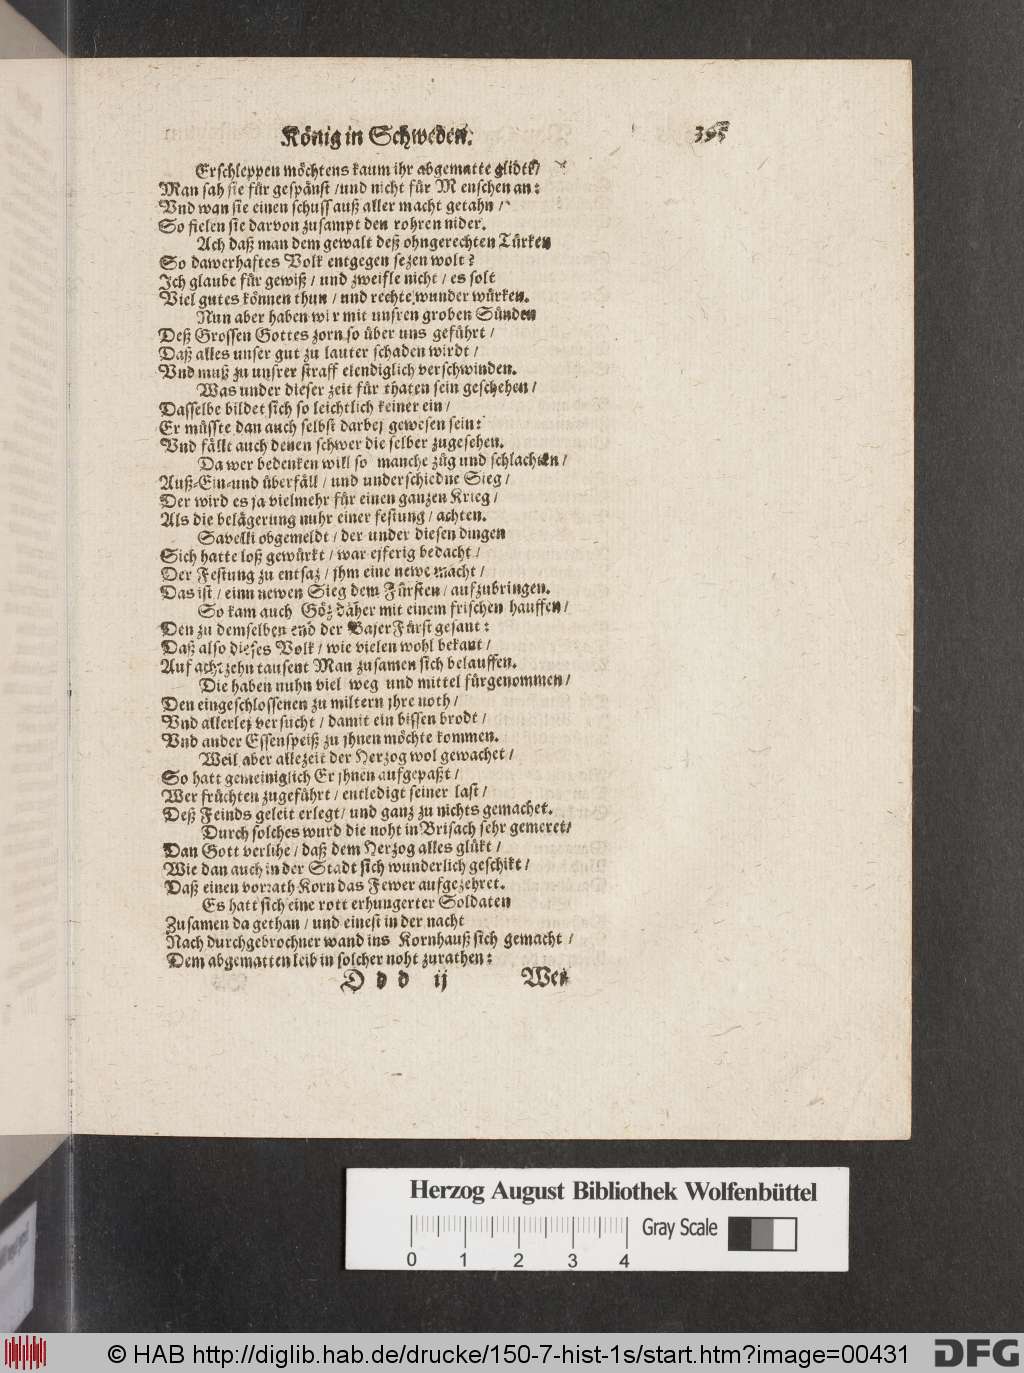 König in Schweden. 395
Erschleppen möchtens kaum ihr abgematte glidte /
Man sah sie für gespänst / und nicht für Menschen an:
Vnd wan sie einen schuss auß aller macht getahn /
So fielen sie darvon zusampt den rohren nider.
Ach daß man dem gewalt deß ohngerechten Türken
So dawerhaftes Volk entgegen sezen wolt?
Ich glaube für gewiß / und zweifle nicht / es solt
Viel gutes können thun / und rechte wunder würken.
Nun aber haben wir mit unsren groben Sünden
Deß Grossen Gottes zorn so über uns geführt /
Daß alles unser gut zu lauter schaden wirdt /
Vnd muß zu unsrer straff elendiglich verschwinden.
Was under dieser zeit für thaten sein geschehen /
Dasselbe bildet sich so leichtlich keiner ein /
Er müsste dan auch selbst darbej gewesen sein:
Vnd fällt auch denen schwer die selber zugesehen.
Da wer bedenken will so manche züg und schlachten /
Auß-Ein-und überfäll / und underschiedne Sieg /
Der wird es ja vielmehr für einen ganzen Krieg /
Als die belägerung nuhr einer festung / achten.
Savelli obgemeldt / der under diesen dingen
Sich hatte loß gewürkt / war ejferig bedacht /
Der Festung zu entsaz / jhm eine newe macht /
Das ist / einn newen Sieg dem Fürsten / aufzubringen.
So kam auch Göz daher mit einem frischen hauffen /
Den zu demselben end der BajerFürst gesant:
Daß also dieses Volk / wie vielen wohl bekant /
Auf achtzehn tausent Man zusamen sich belauffen.
Die haben nuhn viel weg und mittel fürgenommen /
Den eingeschlossenen zu miltern jhre noth /
Vnd allerlej versucht / damit ein bissen brodt /
Vnd ander Essenspeiß zu jhnen möchte kommen.
Weil aber allezeit der Herzog wol gewachet /
So hatt gemeiniglich Er jhnen aufgepaßt /
Wer früchten zugeführt / entledigt seiner last /
Deß Feinds geleit erlegt / und ganz zu nichts gemachet.
Durch solches wurd die noht in Brisach sehr gemeret /
Dan Gott verlihe / daß dem Herzog alles glükt /
Wie dan auch in der Stadt sich wunderlich geschikt /
Daß einen vorrath Korn das Fewer aufgezehret.
Es hatt sich eine rott erhungerter Soldaten
Zusamen da gethan / und einest in der nacht
Nach durchgebrochner wand ins Kornhauß sich gemacht /
Dem abgematten leib in solcher noht zurathen:
Ddd ij Wei
Herzog August Bibliothek Wolfenbüttel
Gray Scale
0 1 2 3 4
© HAB http://diglib.hab.de/drucke/150-7-hist-1s/start.htm?image=00431
DFG